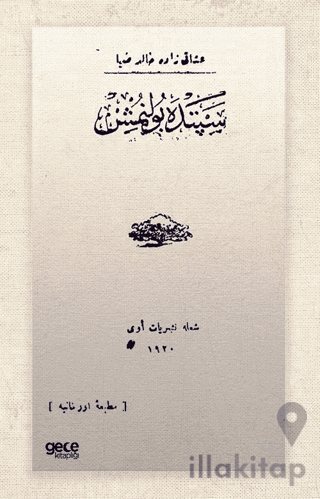 عشاقی زاده خالد ضیا
سپتده بولنمش
شعله نشریات أوی
١٩٢٠
[ مطبعهٔ اورخانیه ]
gece
kitaplığı
illakitap